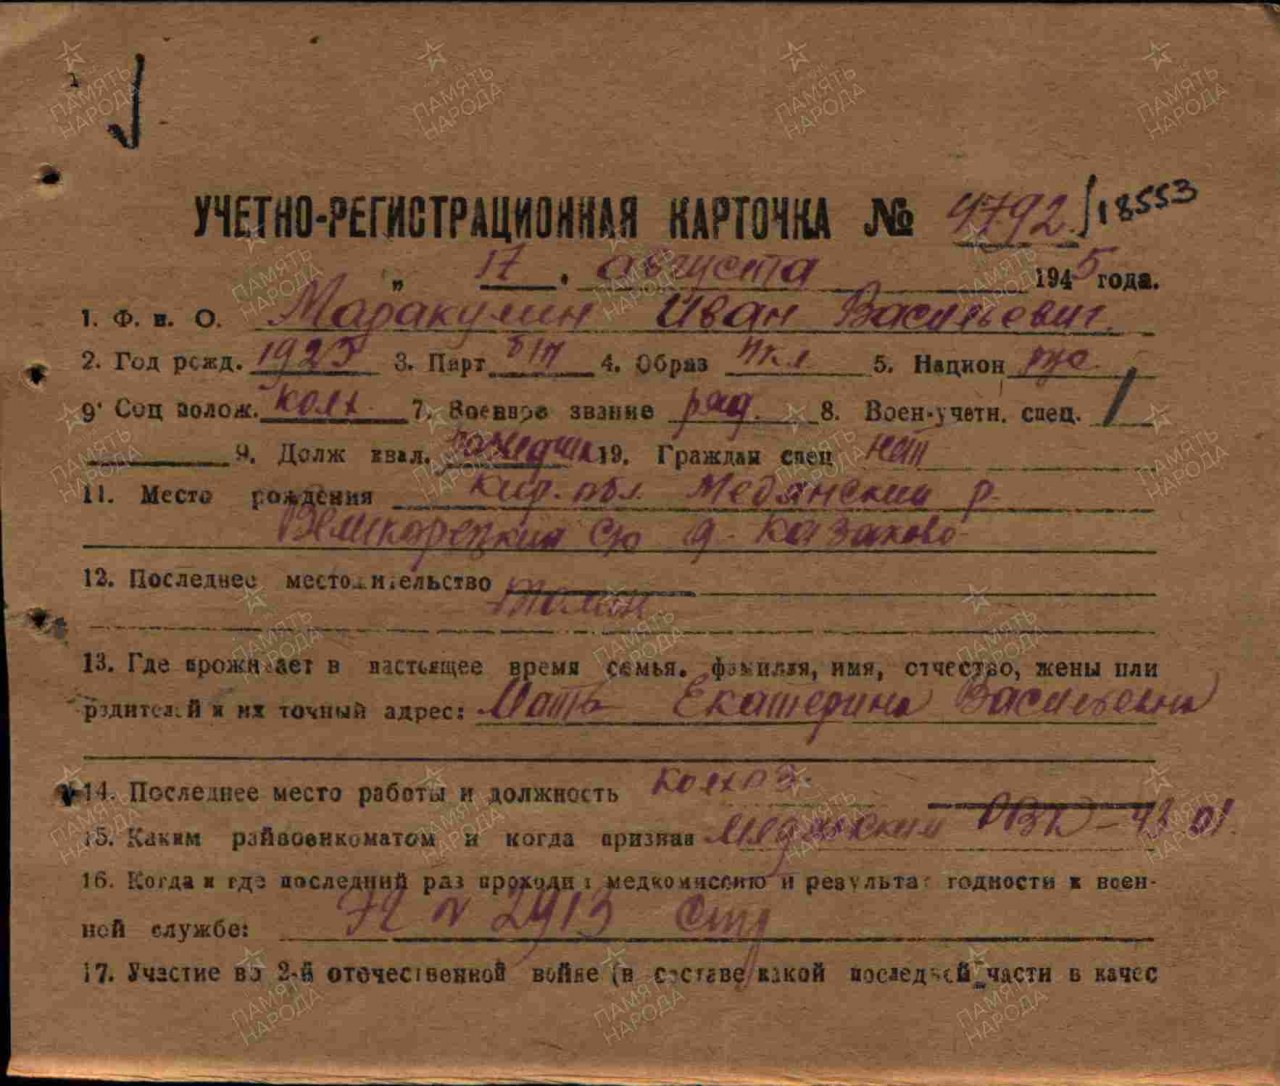 УЧЕТНО-РЕГИСТРАЦИОННАЯ КАРТОЧКА № 4792/18553
„ 17 . августа 1945 года.
1. Ф. и. О. Маракулин Иван Васильевич.
2. Год рожд. 1925 3. Парт б/п 4. Образ 4 кл 5. Национ рус.
9· Соц полож. колх. 7. Военное звание ряд. 8. Воен-учетн. спец. 1
9. Долж квал. 19. Граждан спец нет
11. Место рождения Кир. обл. Медянский р-
Великорецкий с/с д. Казаково
12. Последнее местожительство
13. Где проживает в настоящее время семья. фамилия, имя, отчество, жены или
родителей и их точный адрес: Мать Екатерина Васильевна
14. Последнее место работы и должность колхоз.
15. Каким райвоенкоматом и когда призван Медянским РВК – 43 г.
16. Когда и где последний раз проходил медкомиссию и результат годности к воен-
ной службе: ЭГ № 2913
17. Участие во 2-й отечественной войне (в составе какой последней части в качес
ПАМЯТЬ НАРОДА